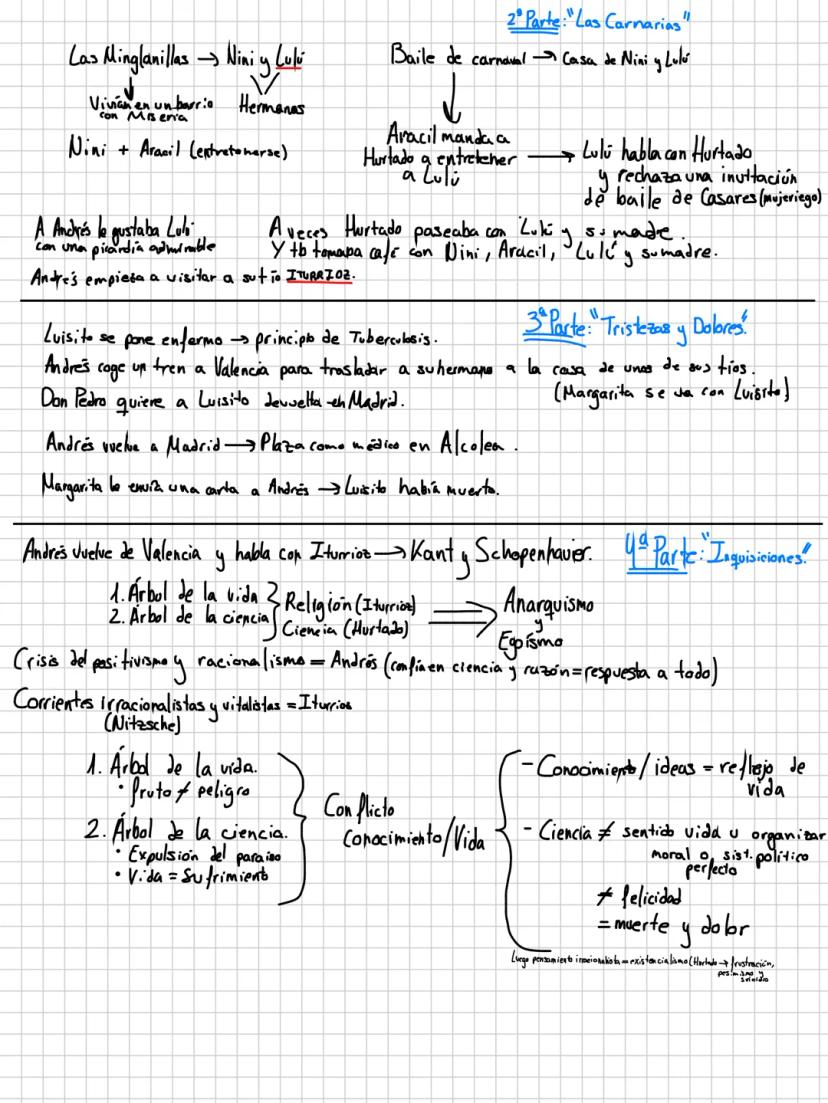 2ª Parte: "Las Carnarias"
Las Minglanillas → Nini y Lulú
Vivían en un barrio
con Miseria
Hermanas
Nini + Aracil (entretenerse)
Baile de carnaval → Casa de Nini y Lulú
Aracil manda a
Hurtado a entretener
a Lulú
→ Lulú habla con Hurtado
y rechaza una invitación
de baile de Casares (mujeriego)
A Andrés le gustaba Lulú
con una picardía admirable
A veces Hurtado paseaba con Lulú y su madre.
Y tb tomaba café con Nini, Aracil, Lulú y su madre.
Andrés empieza a visitar a su tío ITURRIOZ.
3ª Parte: "Tristezas y Dolores"
Luisito se pone enfermo → principio de Tuberculosis.
Andrés coge un tren a Valencia para trasladar a su hermano a la casa de unos de sus tíos.
(Margarita se va con Luisito)
Don Pedro quiere a Luisito devuelta en Madrid.
Andrés vuelve a Madrid → Plaza como médico en Alcolea.
Margarita le envía una carta a Andrés → Luisito había muerto.
4ª Parte: "Inquisiciones"
Andrés vuelve de Valencia y habla con Iturrioz → Kant y Schopenhauer.
1. Árbol de la vida
2. Árbol de la ciencia
Religión (Iturrioz)
Ciencia (Hurtado)
⇒ Anarquismo
y
Egoísmo
Crisis del positivismo y racionalismo = Andrés (confía en ciencia y razón = respuesta a todo)
Corrientes irracionalistas y vitalistas = Iturrioz
(Nitzsche)
1. Árbol de la vida.
• fruto ≠ peligro
2. Árbol de la ciencia.
• Expulsión del paraiso
• Vida = Sufrimiento
Conflicto
Conocimiento/Vida
- Conocimiento/ideas = reflejo de
vida
- Ciencia ≠ sentido vida u organizar
moral o sist. político
perfecto
≠ felicidad
= muerte y dolor
Luego pensamiento irracionalista = existencialismo (Hurtado → frustración,
pesimismo y
suicidio